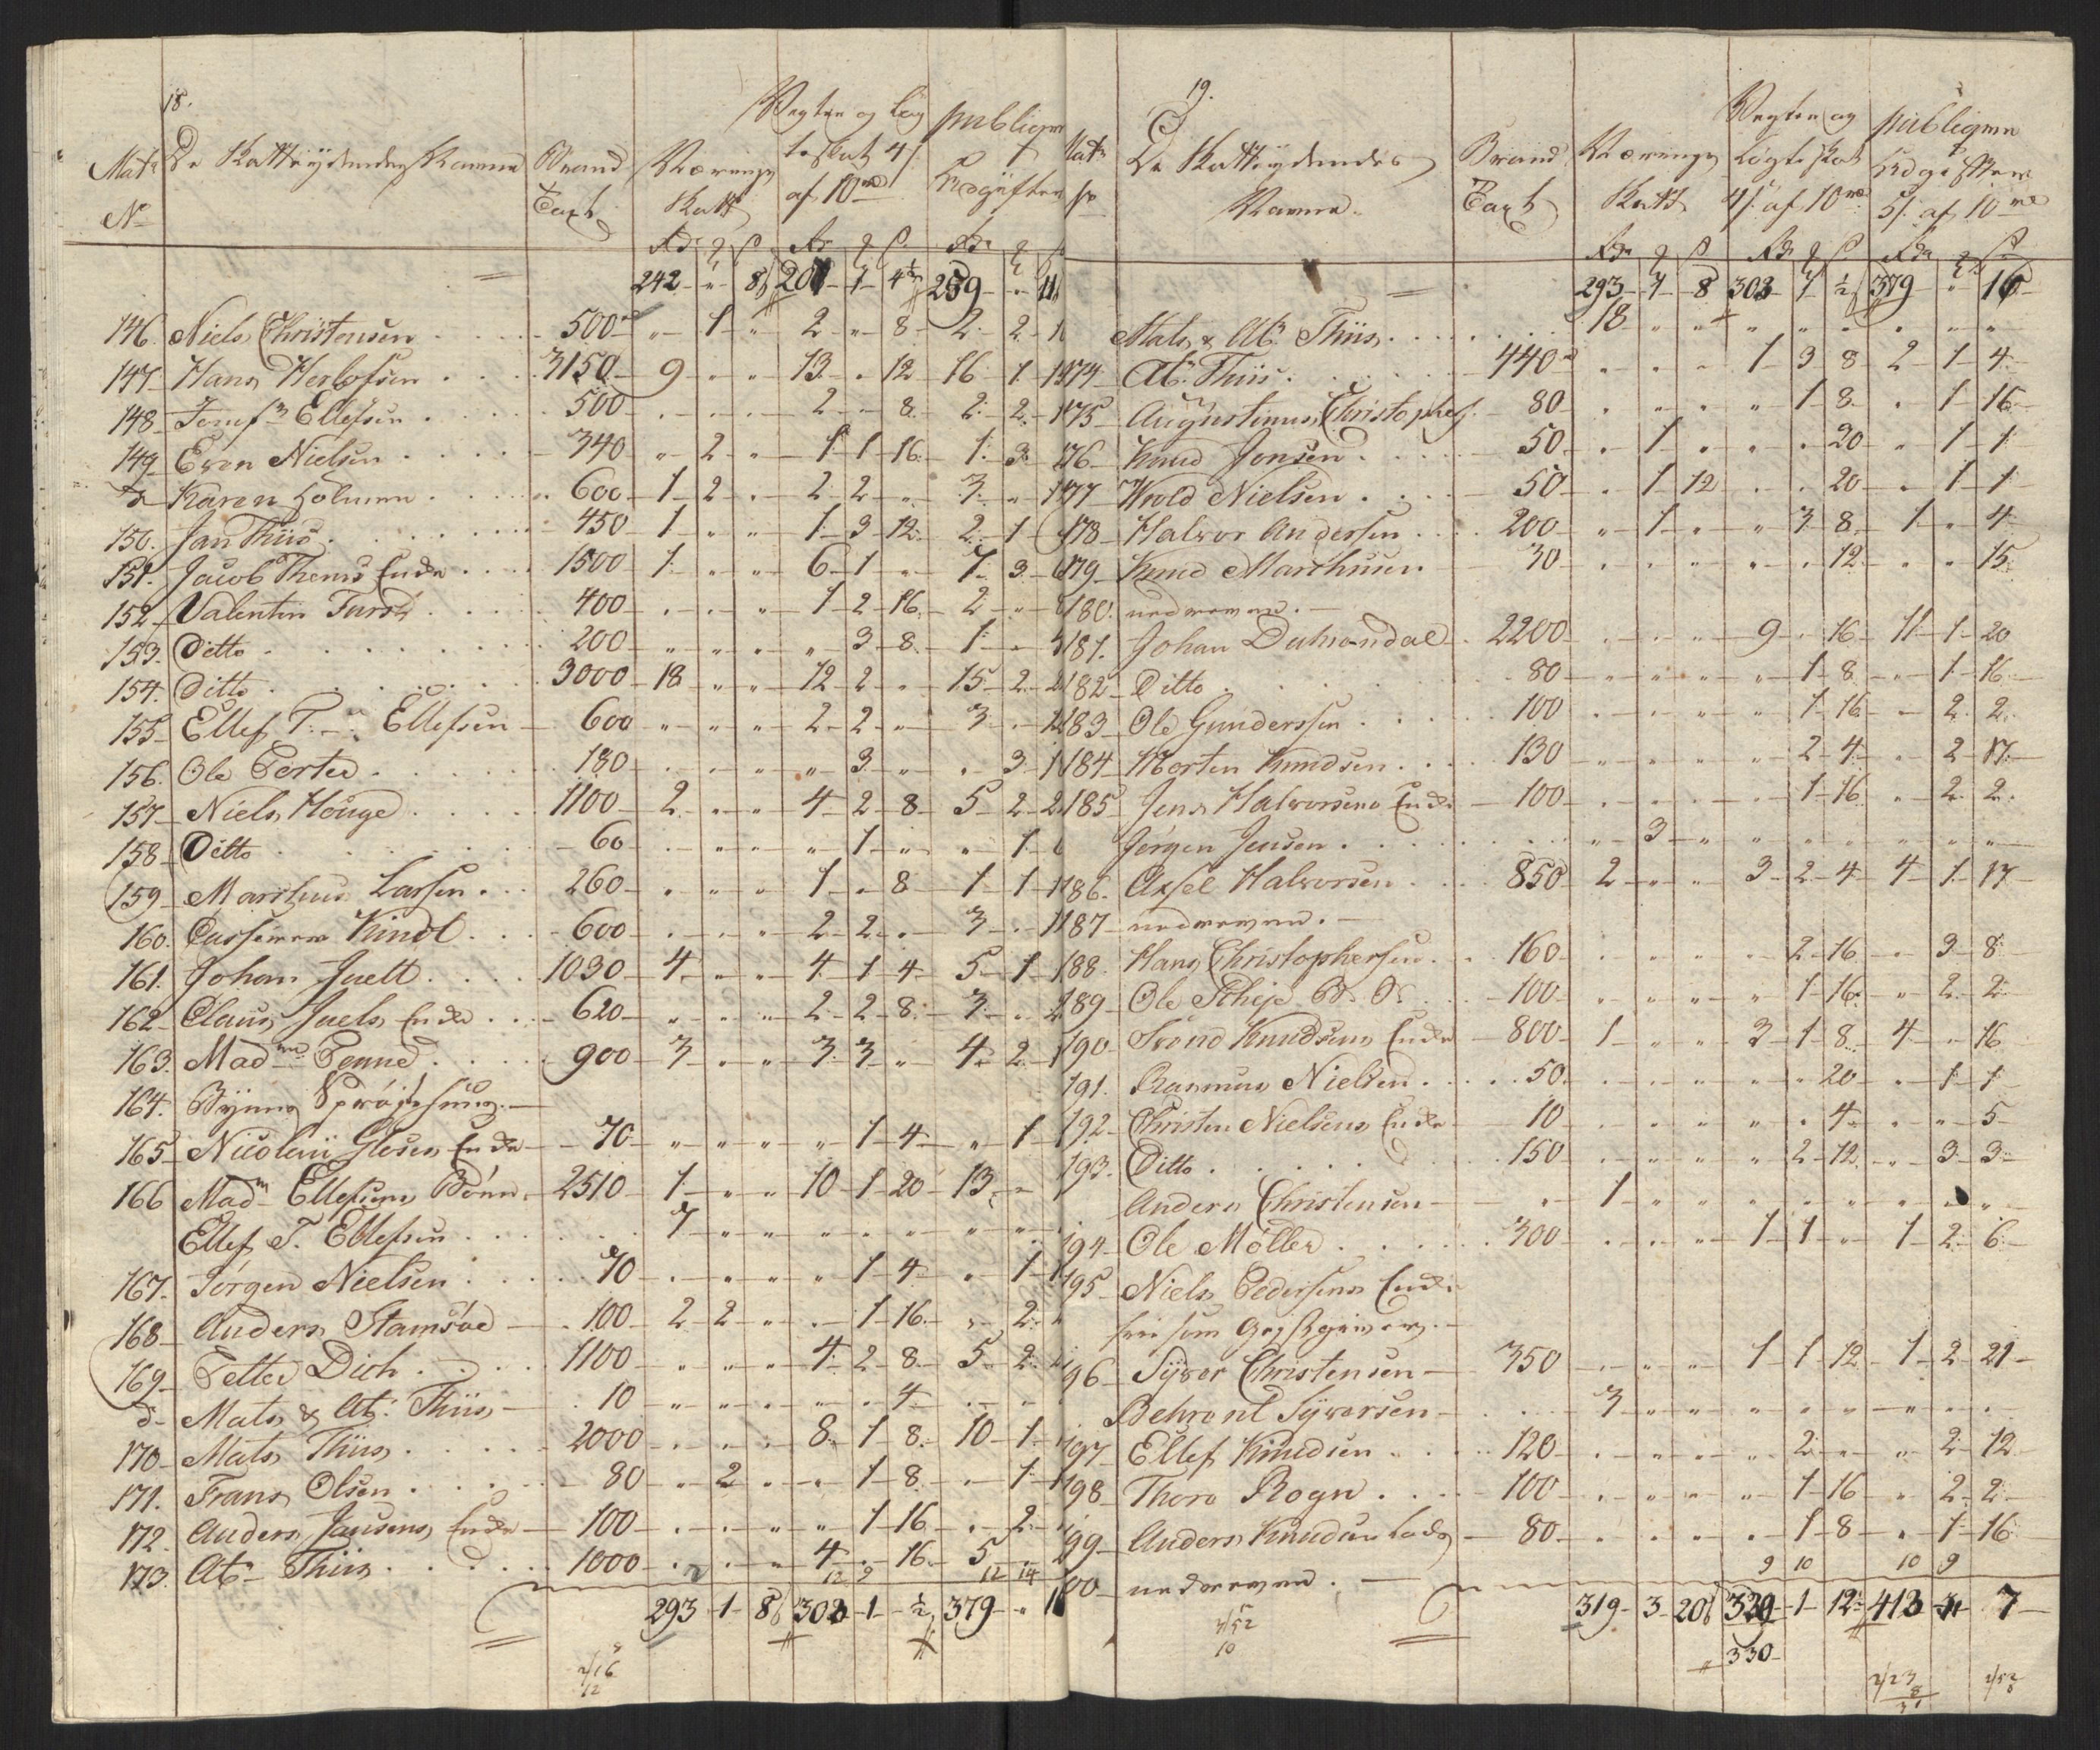 18.
Mats No | De Skatteydendes Navne | Brand Taxt | Nærings Skatt | Vegter og Løg te Skat 4 s af 10 rd | publique Udgifter
Rdr | q | s | Rdr | q | s | Rdr | q | s
242 - " - 8 | 201 - 1 - 4½ | 259 - " - 11
146. Niels Christensen . . . 500 rd " - 1 - " 2 - " - 8 2 - 2 - 1
147. Hans Herlofsen . . . 3150 9 - " - " 13 - " - 12 16 - 1 - 1
148 Ellefsen . . . 500 " - " - " 2 - " - 8 2 - 2 - 1
149 Even Nielsen . . . 340 " - 2 - " 1 - 1 - 16 1 - 3
d Karen Holmen . . . 600 1 - 2 - " 2 - 2 - " 3 - " - 1
150. Jan Thiis . . . 450 1 - " - " 1 - 3 - 12 2 - 1
151. Jacob Thems Enke . . . 1500 1 - " - " 6 - 1 - " 7 - 3 - 6
152 Valentin Furst . . . 400 " - " - " 1 - 2 - 16 2 - "
153. Ditto . . . 200 " - " - " " - 3 - 8 1 - "
154. Ditto . . . 3000 18 - " - " 12 - 2 - " 15 - 2 - 2
155 Ellef T. Ellefsen 600 " - " - " 2 - 2 - " 3 - " - 1
156. Ole Porter . . . 180 " - " - " " - 3 - " " - 3 - 1
157 Niels Houge . . . 1100 2 - " - " 4 - 2 - 8 5 - 2 - 2
158 Ditto . . . 60 " - " - " " - 1 - " " - 1 - 6
159 Marthus Larsen . . . 260 " - " - " 1 - " - 8 1 - 1 - 1
160. Casserer Kindt . . . 600 " - " - " 2 - 2 - " 3 - " - 1
161. Johan Juell . . . 1030 4 - " - " 4 - 1 - 4 5 - 1
162 Claus Juels Enke . . . 620 " - " - " 2 - 2 - 8 3 - " - 2
163. Mad me Penne . . . 900 3 - " - " 3 - 3 - " 4 - 2 - 1
164. Byens Sprøitehuus. —
165 Nicolaii Glosen Enke 70 " - " - " " - 1 - 4 " - 1 - 1
166 Mad m Ellefsens Børn 2510 1 - " - " 10 - 1 - 20 13 - "
Ellef T. Ellefsen . . . 7 - " - " " - " - " " - "
167. Jørgen Nielsen . . . 70 " - " - " " - 1 - 4 " - 1 - 1
168 Anders Stamsøe 100 2 - 2 - " " - 1 - 16 " - 2
169 Petter Dich . . . 1100 " - " - " 4 - 2 - 8 5 - 2
d- Mats & Ab: Thiis 10 " - " - " " - " - 4 " - "
170 Mats Thiis . . . 2000 " - " - " 8 - 1 - 8 10 - 1
171. Frans Olsen . . . 80 " - 2 - " " - 1 - 8 " - 1
172. Anders Jansens Enke 100 " - " - " " - 1 - 16 " - 2
173. Ab: Thiis . . . 1000 " - " - " 4 - " - 16 5
12 9 12 14
293 - 1 - 8 | 302 - 1 - ½ | 379 - " - 1
19.
Mats | De Skatteydendes Navne. | Brand Taxt | Nærings Skatt | Vegter og Løgte Skat 4 s af 10 rd | publique Udgifter 5 s af 10 rd
Rdr | q | s | Rdr | q | s | Rdr | q | s
293 - 1 - 8 303 - 1 - ½ 379 - " - 16
Mats & Ab: Thiis . . . 18 - " - " " - " - " " - " - "
174 Ab: Thiis . . . 440 rd " - " - " 1 - 3 - 8 2 - 1 - 4
175 Augustinus Christophers. 80 " - " - " " - 1 - 8 " - 1 - 16
176 Knud Jensen . . . 50 " - 1 - " " - " - 20 " - 1 - 1
177 Wrold Nielsen . . . 50 " - 1 - 12 " - " - 20 " - 1 - 1
178 Halvor Andersen . . . 200 " - 1 - " " - 3 - 8 1 - " - 4
179 Knud Marthusen 30 " - " - " " - " - 12 " - " - 15
180. nedreven. —
181. Johan Dahrendal 2200 " - " - " 9 - " - 16 11 - 1 - 20
182 Ditto . . . 80 " - " - " " - 1 - 8 " - 1 - 16
183 Ole Gunderssen . . . 100 " - " - " " - 1 - 16 " - 2 - 2
184 Morten Knudsen . . . 130 " - " - " " - 2 - 4 " - 2 - 17
185 Jens Halvorsens Enke 100 " - " - " " - 1 - 16 " - 2 - 2
Jørgen Jensen . . . " - 3 - " " - " - " " - " - "
186. Axsel Halvorsen . . . 850 2 - " - " 3 - 2 - 4 4 - 1 - 17
187 nedreven. —
188. Hans Christophersen . . . 160 " - " - " " - 2 - 16 " - 3 - 8
189 Ole Schie . . . 100 " - " - " " - 1 - 16 " - 2 - 2
190 Trond Knudsens Enke 800 1 - " - " 3 - 1 - 8 4 - " - 16
191. Rasmus Nielsen . . . 50 " - " - " " - " - 20 " - 1 - 1
192 Christen Nielsens Enke 10 " - " - " " - " - 4 " - " - 5
193. Ditto . . . 150 " - " - " " - 2 - 12 " - 3 - 3
Anders Christensen " - 1 - " " - " - " " - " - "
194 Ole Møller . . . 300 " - " - " 1 - 1 - " 1 - 2 - 6
195 Niels Pedersens Enke
196 Syver Christensen 350 " - " - " 1 - 1 - 12 1 - 2 - 21
Behrent Syversen 3 - " - " " - " - " " - " - "
197 Ellef Knudsen . . . 120 " - " - " " - 2 - " " - 2 - 12
198 Thore Rogn . . . 100 " - " - " " - 1 - 16 " - 2 - 2
199 Anders Knudsen 80 " - " - " " - 1 - 8 " - 1 - 16
9 10 10 9
00 nedreven. —
319 - 3 - 20 | 329 - 1 - 12 | 413 7
330